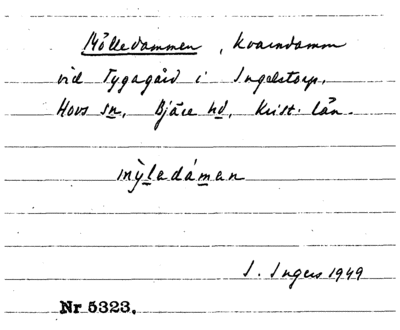 Mölledammen, kvarndamm
vid Tygagård i Ingelstorp.
Hovs sn, Bjäre hd, Krist. län.
mỳledáman
I. Ingers 1949
Nr 5323.